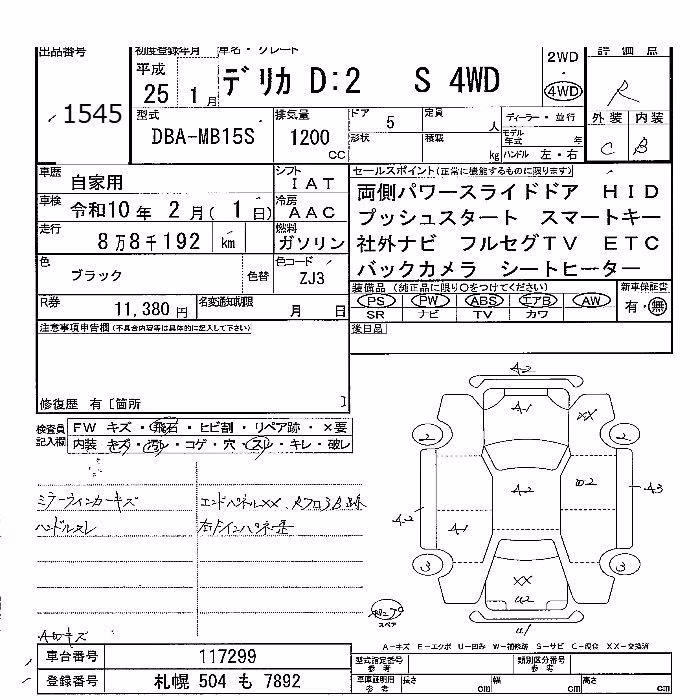 出品番号 初度登録年月 車名・グレード 2WD 評価点
1545 平成 25 1月 デリカ D:2 S 4WD 4WD R
型式 排気量 ドア 定員 ディーラー・並行 外装 内装
DBA-MB15S 1200 CC 5 人 モデル年式 年 C B
形状 積載 kg ハンドル 左・右
車歴 自家用 シフト IAT セールスポイント(正常に機能するものに限ります)
車検 令和10年 2月(1日) 冷房 AAC 両側パワースライドドア HID
走行 8万8千192 km 燃料 ガソリン プッシュスタート スマートキー
社外ナビ フルセグTV ETC
色 ブラック 色替 色コード ZJ3 バックカメラ シートヒーター
R券 11,380円 名変通知期限 月 日 装備品(純正品に限り○をつけてください) 新車保証書
PS PW ABS エアB AW 有・無
SR ナビ TV カワ
注意事項申告欄(不具合内容等は具体的に記入して下さい) 後日品
修復歴 有[箇所 ]
検査員記入欄 FW キズ・飛石・ヒビ割・リペア跡・×要
内装 キズ・汚レ・コゲ・穴・スレ・キレ・破レ
ミラーウィンカーキズ エンドパネルXX
ハンドルスレ
A2
A1 XX
2 2
A2 W2 A3
A2 A1
3 3
XX
W2
U1
スペア
A-キズ E-エクボ U-凹み W-補修跡 S-サビ C-腐食 XX-交換済
車台番号 117299 型式指定番号 参考 類別区分番号 参考
登録番号 札幌 504 も 7892 車庫証明用 参考 長さ cm 幅 cm 高さ cm